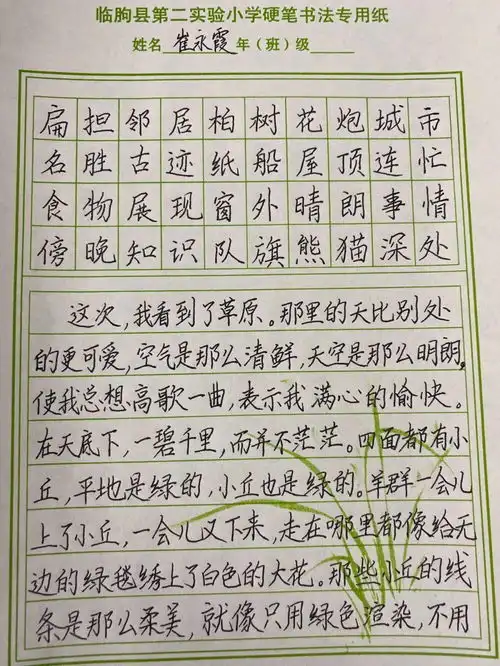 临朐县第二实验小学硬笔书法专用纸
姓名崔永霞年(班)级
扁担邻居柏树花炮城市
名胜古迹纸船屋顶连忙
食物展现窗外晴朗事情
傍晚知识队旗熊猫深处
这次,我看到了草原。那里的天比别处
的更可爱,空气是那么清鲜,天空是那么明朗,
使我总想高歌一曲,表示我满心的愉快。
在天底下,一碧千里,而并不茫茫。四面都有小
丘,平地是绿的,小丘也是绿的。羊群一会儿
上了小丘,一会儿又下来,走在哪里都像给无
边的绿毯绣上了白色的大花。那些小丘的线
条是那么柔美,就像只用绿色渲染,不用